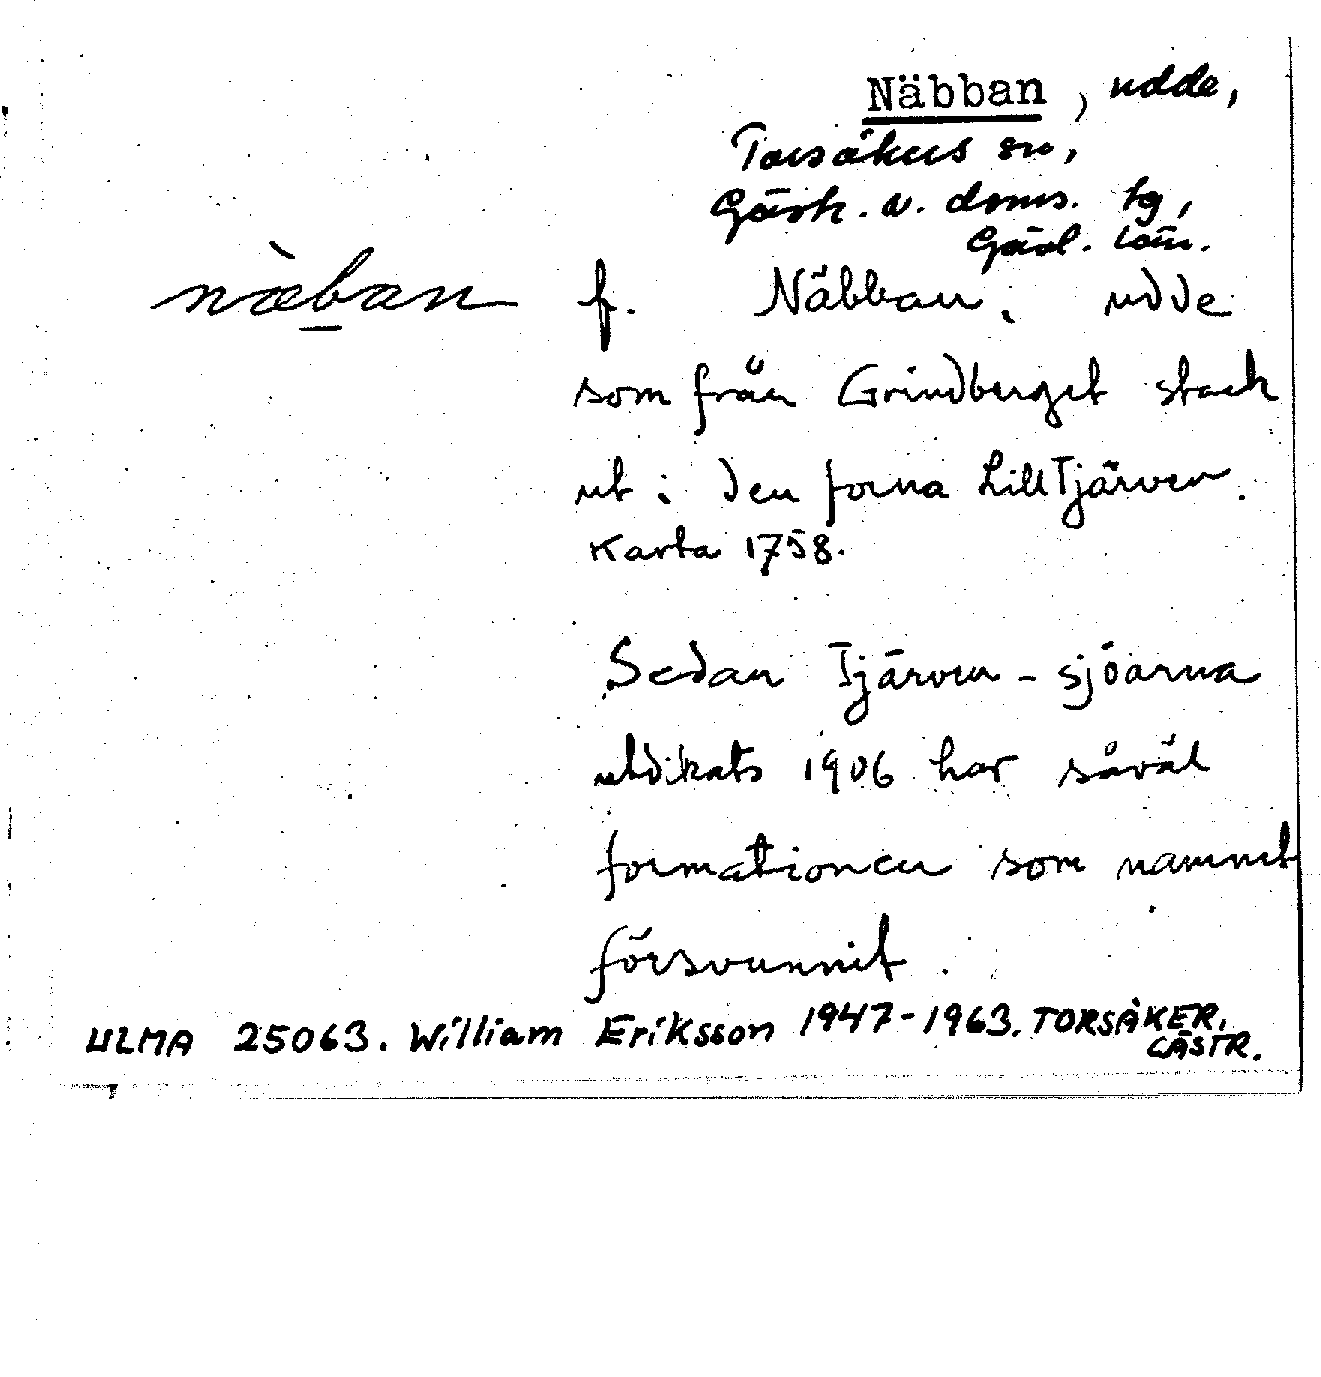 Näbban, udde,
Torsåkers sn,
Gästr. v. doms. tg,
Gävl. län.
næ̀b̲an f. Näbban. udde
som från Grindberget stack
ut i den forna LillTjärven.
Karta 1758.
Sedan Tjärven-sjöarna
utdikats 1906 har såväl
formationen som namnet
försvunnit.
ULMA 25063. William Eriksson 1947-1963. TORSÅKER.
GÄSTR.